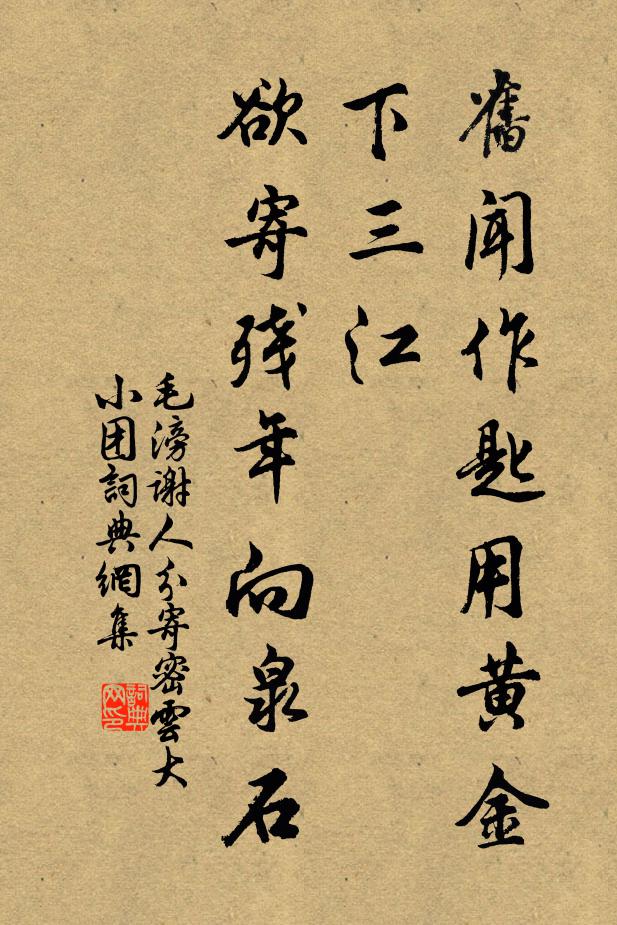 舊闻作匙用黄金
下三江
欲寄残年向泉石
毛滂谢人分寄密雲大
小团詞典網集
詞典
网印